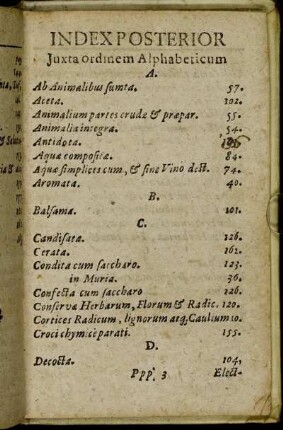 INDEX POSTERIOR
Juxta ordinem Alphabeticum
A.
Ab Animalibus sumta. 57.
Aceta. 102.
Animalium partes crudæ & præpar. 55.
Animalia integra. 54.
Antidota.
Aquæ compositæ. 84.
Aquæ simplices cum, & sine Vino dest. 74.
Aromata. 40.
B.
Balsama. 101.
C.
Candisata. 126.
Cerata. 162.
Condita cum saccharo. 123.
in Muria. 36.
Confecta cum saccharo 126.
Conserva Herbarum, Florum & Radic. 120.
Cortices Radicum, lignorum atq; Caulium 10.
Croci chymicè parati. 155.
D.
Decocta. 104,
Ppp 3 Elect-